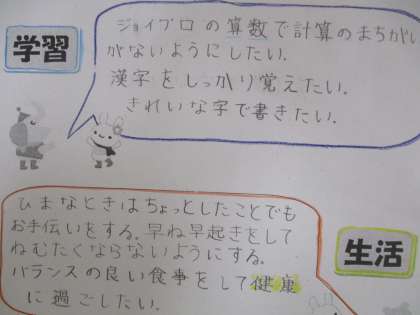 学習
ジョイプロの算数で計算のまちがい
がないようにしたい.
漢字をしっかり覚えたい.
きれいな字で書きたい.
ひまなときはちょっとしたことでも
お手伝いをする.早ね早起きをして
ねむたくならないようにする.
バランスの良い食事をして健康
に過ごしたい.
生活